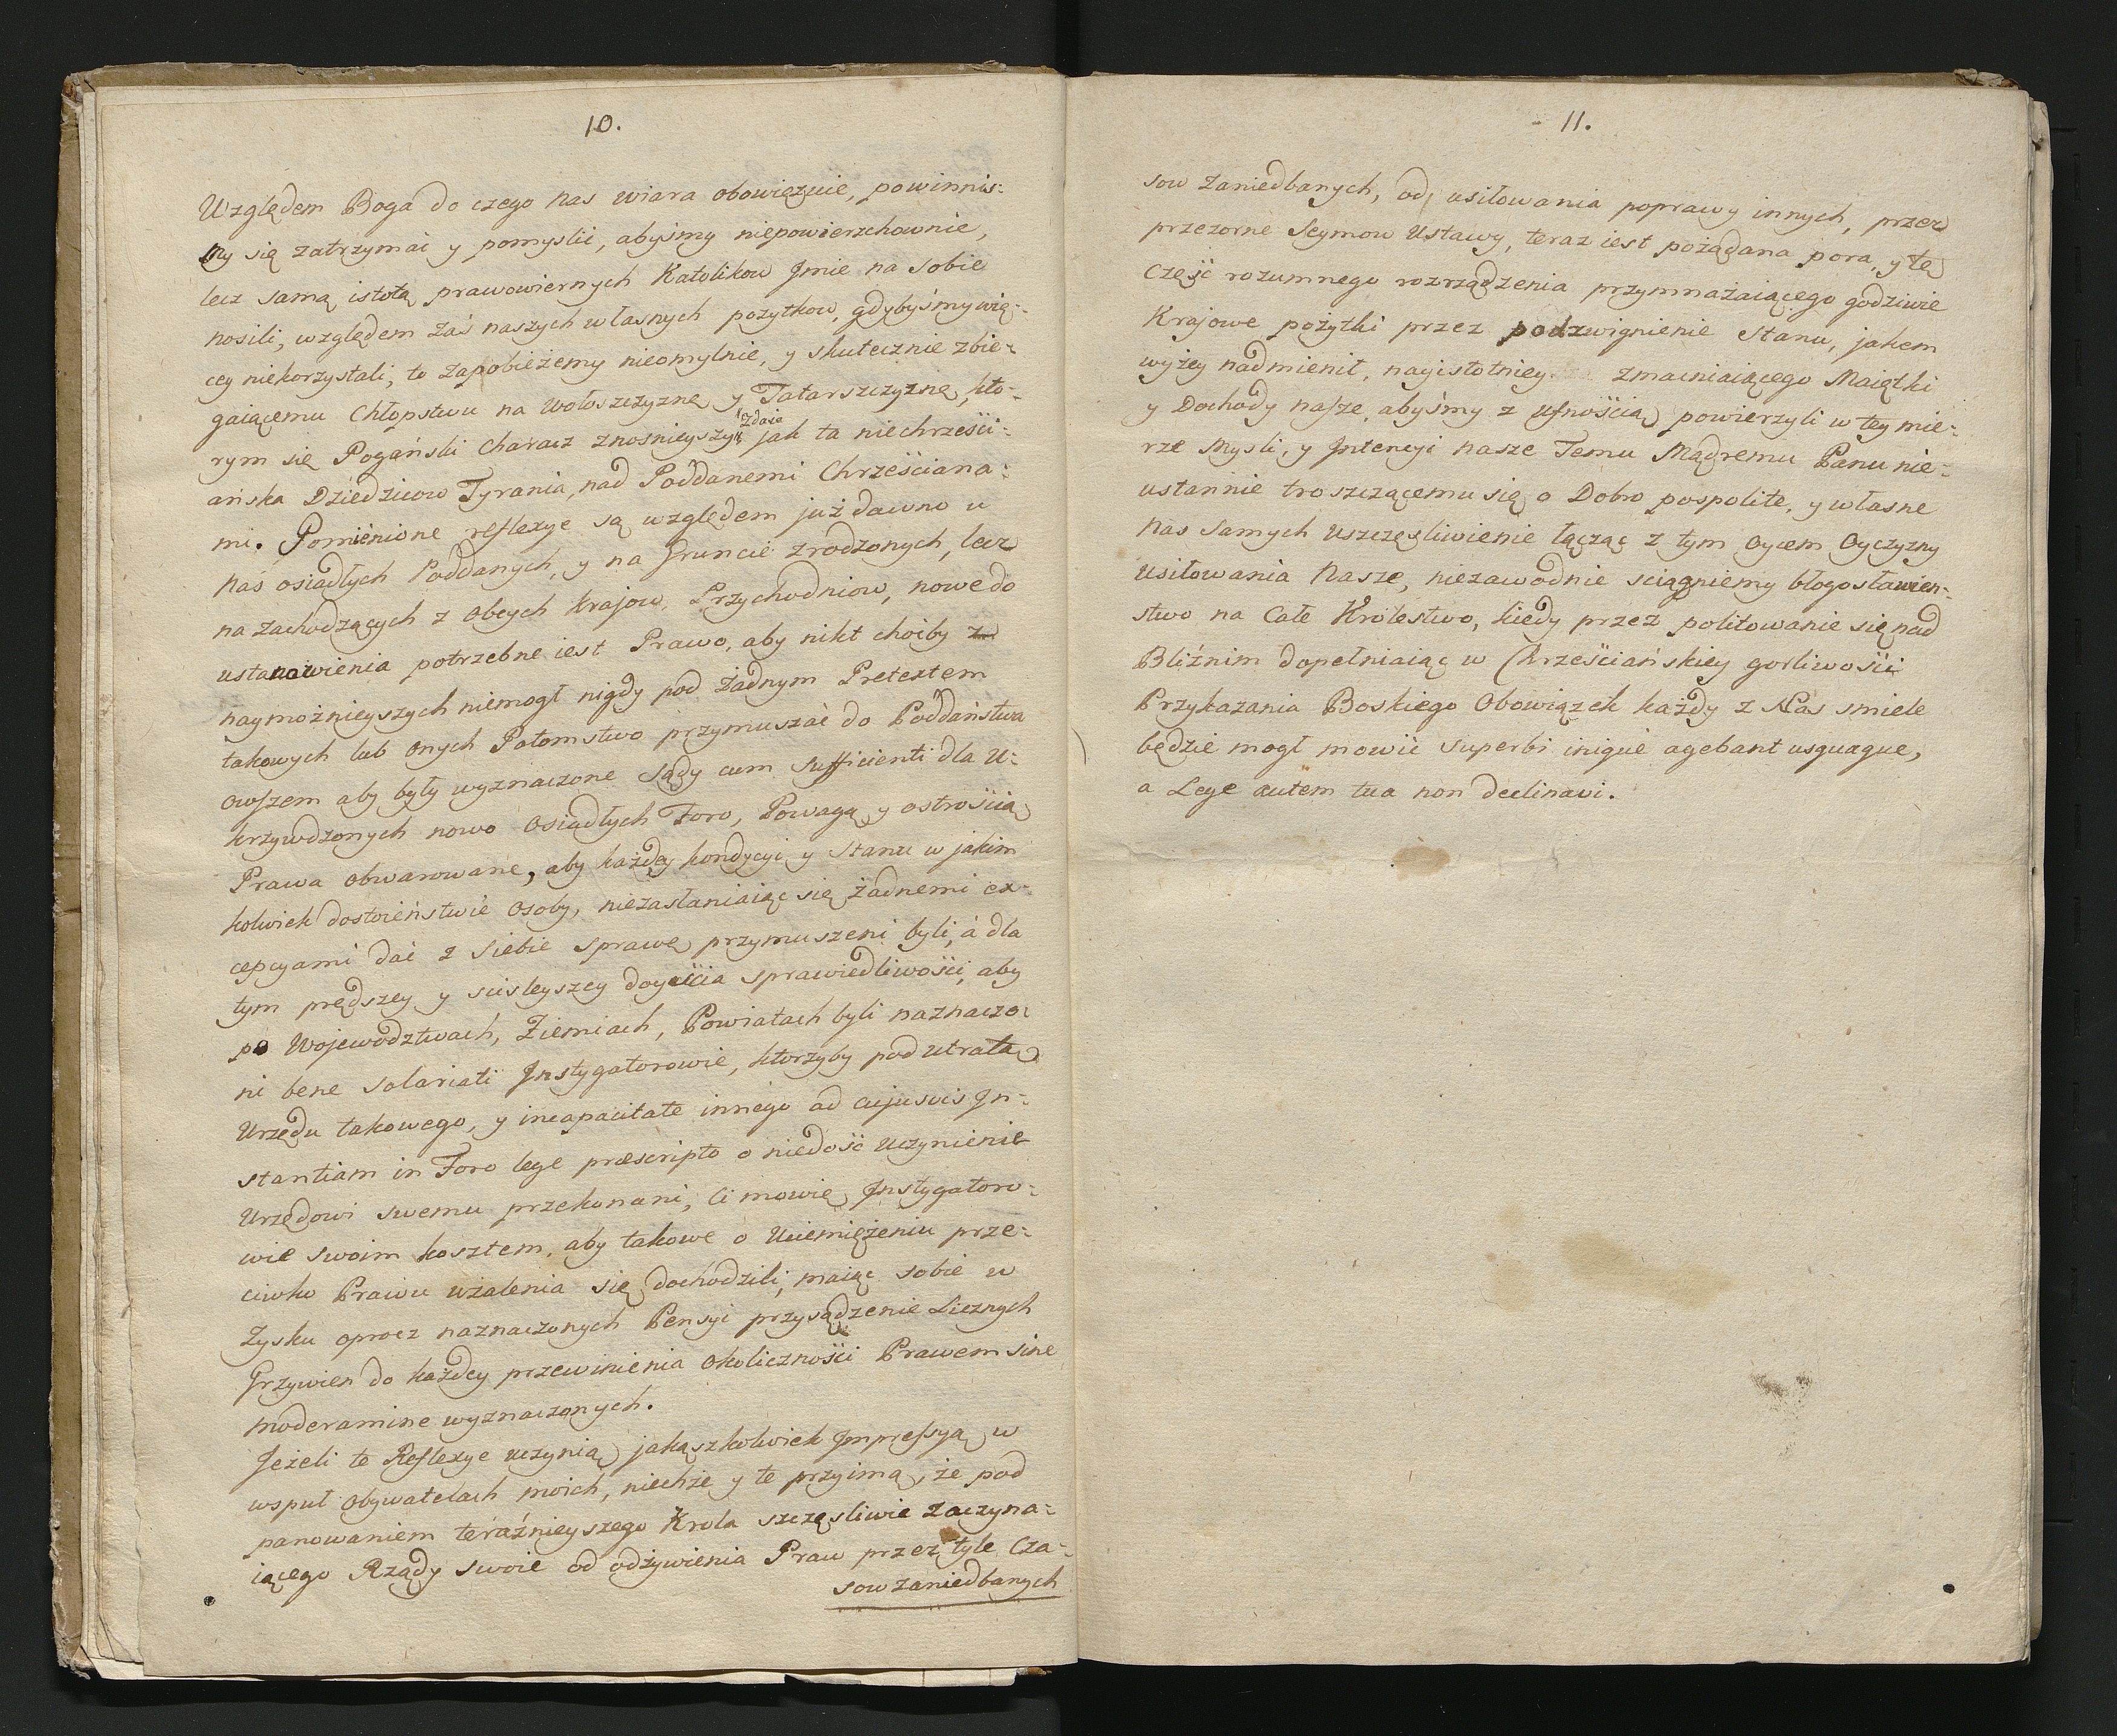 10.
Względem Boga do czego nas wiara obowięzuie, powinnis:
my się zatrzymać y pomyslić, abyśmy niepowierzchownie,
lecz samą istotą prawowiernych Katolikow Jmie na sobie
nosili, względem zaś naszych własnych pożytkow, gdybyśmy wię:
cey niekorzystali, to zapobieżemy nieomylnie, y skutecznie zbie:
gaiącemu Chłopstwu na Wołoszczyznę y Tatarszczyznę, kto:
rym się Pogański Characz znosnieyszy zdaie jak ta niechrześci:
ańska Dziedzicow Tyrania, nad Poddanemi Chrześciana:
mi. Pomienione reflexye są względem już dawno u
nas osiadłych Poddanych, y na Gruncie zrodzonych, lecz
na zachodzących z obcych krajow, Przychodniow, nowe do
ustanowienia potrzebne iest Prawo, aby nikt choćby z
naymożnieyszych niemogł nigdy pod żadnym Pretextem
takowych lub onych Potomstwo przymuszać do Poddaństwa
owszem aby były wyznaczone Sądy cum sufficienti dla u:
krzywdzonych nowo osiadłych Foro, Powagą y ostrością
Prawa obwarowane, aby każdey kondycyi y Stanu w jakim
kolwiek dostoieństwie osoby, niezasłaniaiąc się żadnemi ex:
cepcyami dać z siebie sprawę przymuszeni byli, á dla
tym prędszey y scisleyszey doyścia sprawiedliwości, aby
po Wojewodztwach, Ziemiach, Powiatach byli naznaczo:
ni bene salariati Jnstygatorowie, ktorzyby pod utratą
Urzędu takowego, y incapacitate innego ad cujusvis Jn:
stantiam in Foro lege præscripto o niedość uczynienie
Urzędowi swemu przekonani, Ci mowię Jnstygatoro:
wie swoim kosztem, aby takowe o Uciemiężeniu prze:
ciwko Prawu użalenia się dochodzili, maiąc sobie w
Zysku oprocz naznaczonych Pensyi przysądzenie Licznych
Grzywien do każdey przewinienia okoliczności Prawem sine
moderamine wyznaczonych.
Jeżeli te Reflexye uczynią jakąszkolwiek Jmpressyą w
wspuł obywatelach moich, niechże y te przyimą, że pod
panowaniem teraźnieyszego Krola szczęsliwie zaczyna:
iącego Rządy swoie od odżywienia Praw przez tyle Cza:
sow zaniedbanych
11.
sow zaniedbanych, od usiłowania poprawy innych, przez
przezorne Seymow Ustawy, teraz iest pożądana pora, y tę
Część rozumnego rozrządzenia przymnażaiącego godziwie
Krajowe pożytki przez podzwignienie Stanu, jakem
wyżey nadmienił, nayistotniey zmacniaiącego Maiątki
y Dochody nasze, abyśmy z ufnością powierzyli w tey mie:
rze Mysli, y Jntencyi nasze Temu Mądremu Panu nie:
ustannie troszczącemu się o Dobro pospolite, y własne
nas samych uszczęsliwienie łącząc z tym Oycem Oyczyzny
usiłowania nasze, niezawodnie sciągniemy błogosławien:
stwo na Całe Krolestwo, kiedy przez politowanie się nad
Bliźnim dopełniaiąc w Chrześciańskiey gorliwości
Przykazania Boskiego Obowiązek każdy z Nas smiele
będzie mogł mowić Superbi inique agebant usquaque,
a Lege autem tua non declinavi.